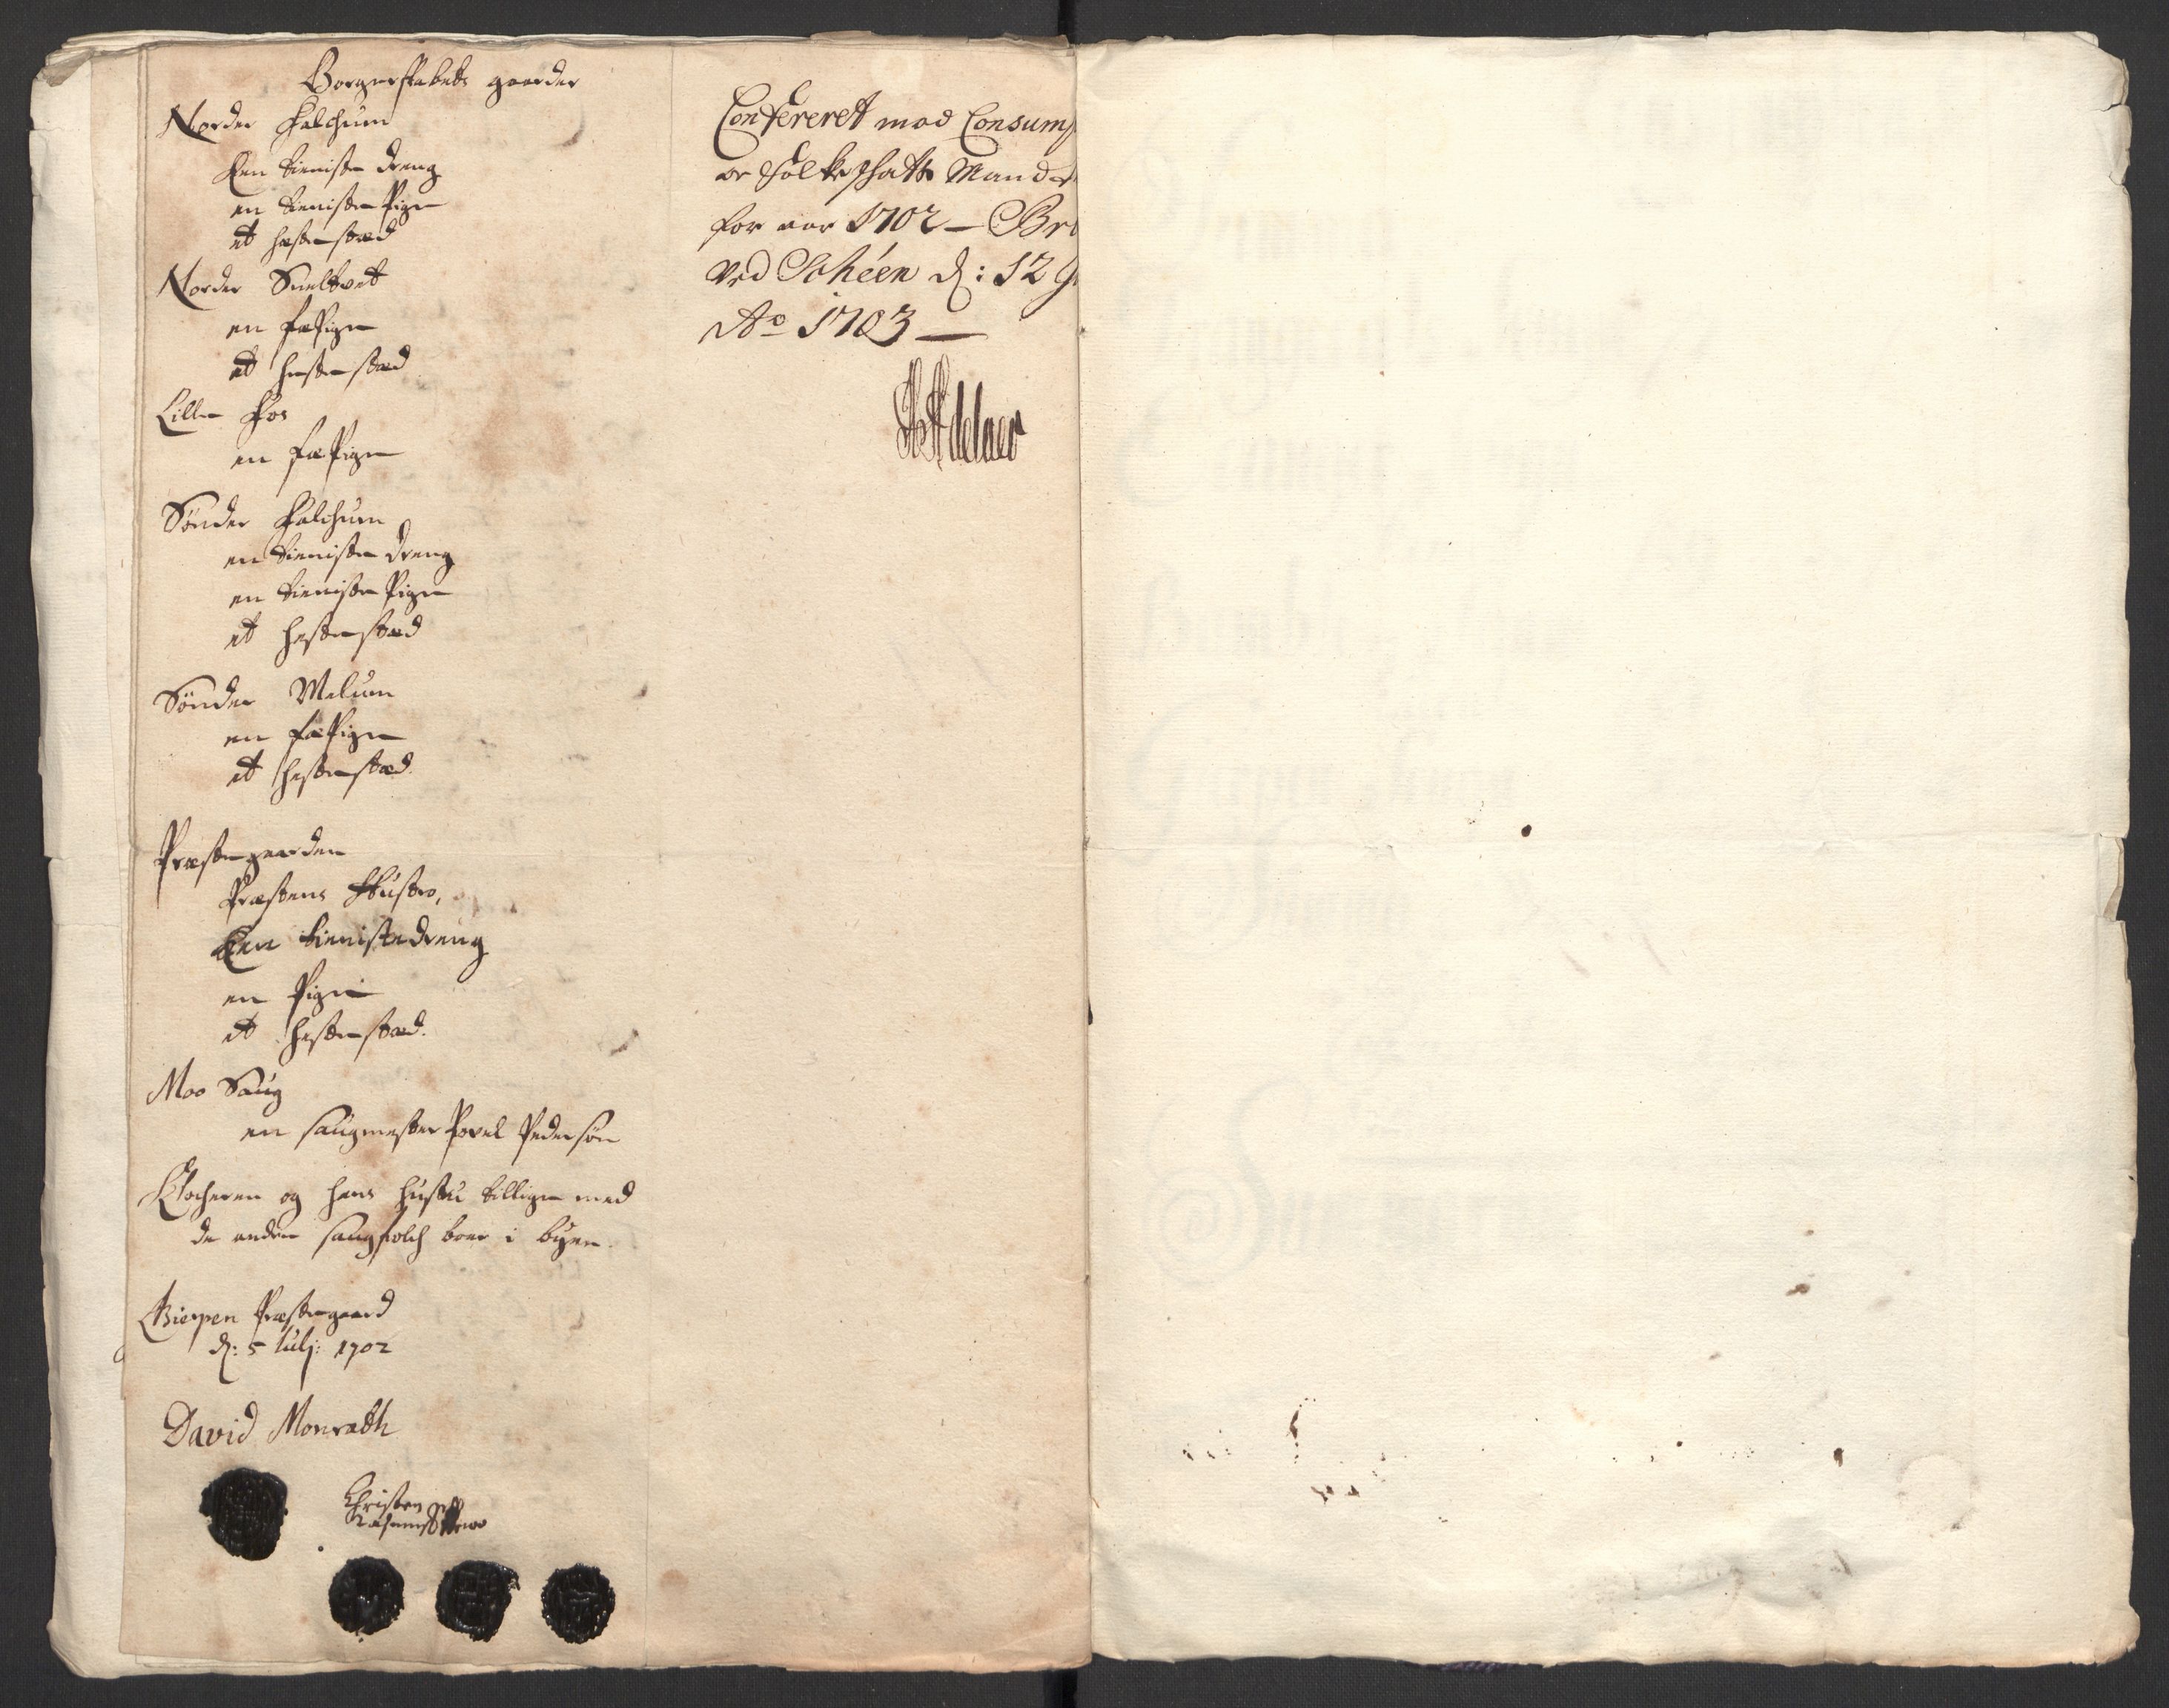 Borgerskabets gaarder
Norder Falchum
Een tieniste dreng
en tieniste Pige
et hestestæd
Norder Sneltvet
en fæPige
et hestestæd
Lille Foss
en fæPige
Sönder Falchum
en tieniste dreng
en tieniste Pige
et hestestæd
Sönder Melum
en fæPige
et hestestæd
Præstegaarden
Præstens Hustro,
Een tienistedreng
en Pige
et hestestæd.
Moo Saug
en saugmester Povel Pedersön
Klocheren og hans hustru tillige med
de andre saugfolch boer i byen
Gierpen Præstegaard
d: 5 Julj: 1702
David Monrath
Christen
Confereret mod Consump
or Folkeskatts Mandt
for aar 1702 - Br
ved Schéen d: 12
Ao 1703 -
Adelaer